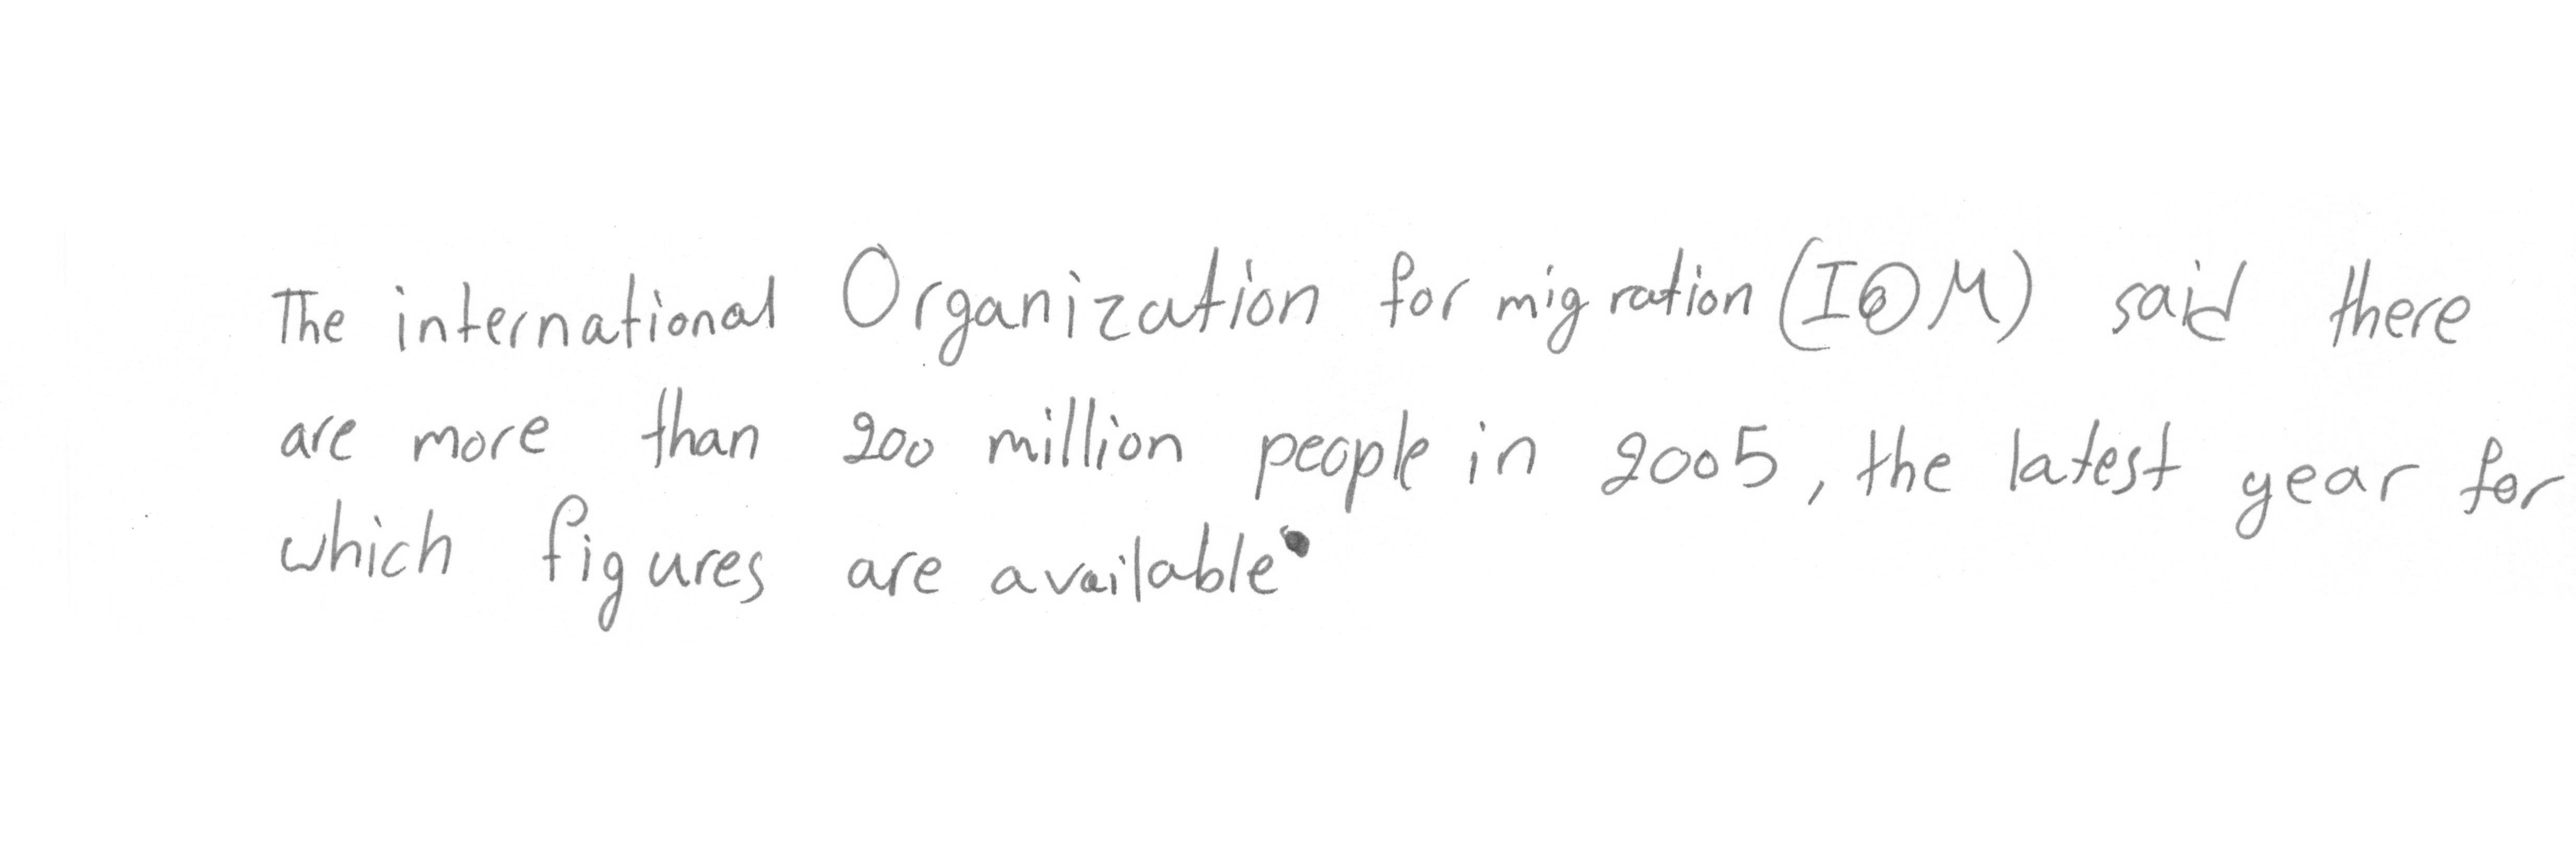 The international Organization for migration (IOM) said there
are more than 200 million people in 2005, the latest year for
which figures are available.